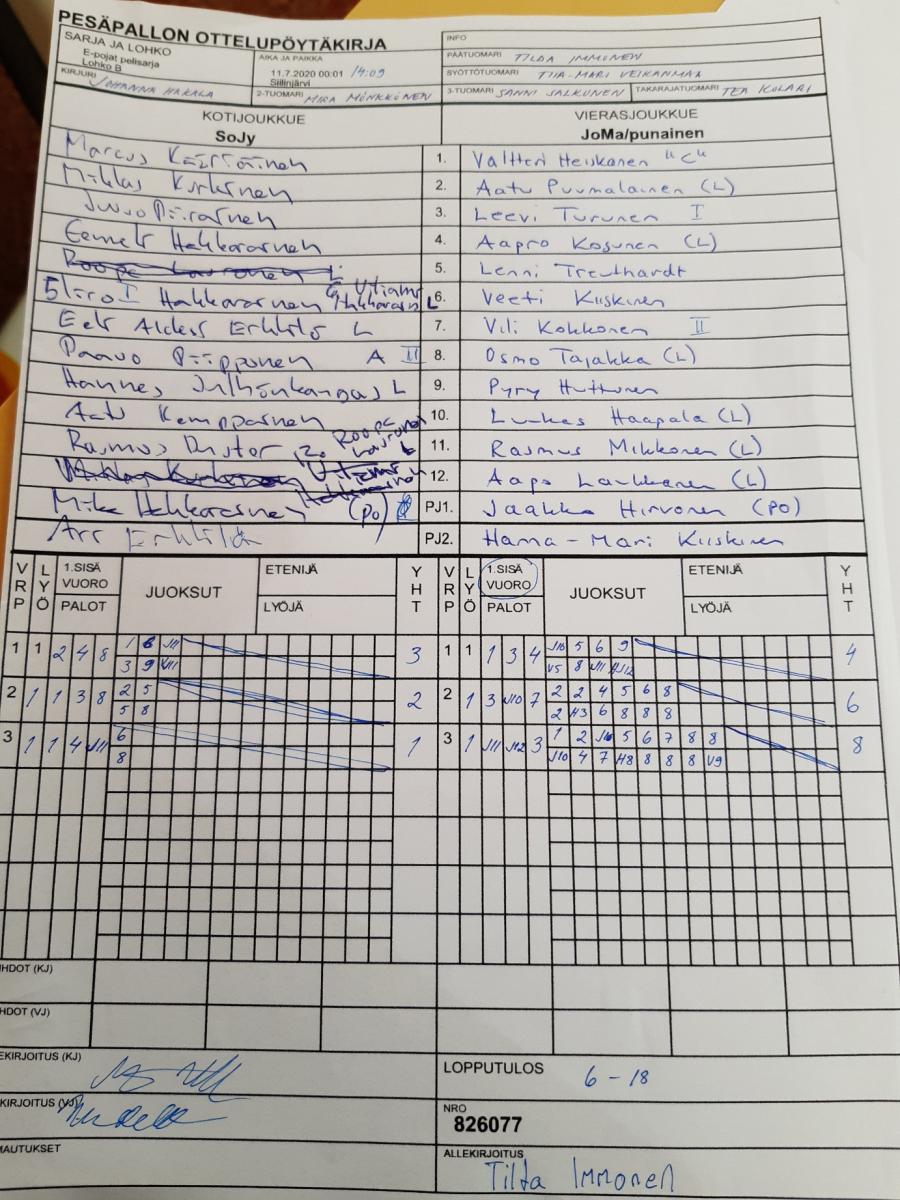 PESÄPALLON OTTELUPÖYTÄKIRJA
SARJA JA LOHKO
E-pojat pelisarja
Lohko B
AIKA JA PAIKKA
11.7.2020 00:01 14:09
Siilinjärvi
INFO
PÄÄTUOMARI TILDA IMMONEN
SYÖTTÖTUOMARI TIIA-MARI VEIKANMAA
KIRJURI JOHANNA HAKALA
2-TUOMARI MIRA MÖNKKÖNEN
3-TUOMARI SANNI JALKUNEN
TAKARAJATUOMARI TEA KOLARI
KOTIJOUKKUE
SoJy
VIERASJOUKKUE
JoMa/punainen
Marcus Kääriäinen 1. Valtteri Heiskanen "C"
Miklas Kurkinen 2. Aatu Puumalainen (L)
Juuso Piirainen 3. Leevi Turunen I
Eemeli Hakkarainen 4. Aapro Kosunen (L)
Roope Lauronen L 5. Lenni Treuthardt
5 Iiro I Hakkarainen 6 Viljami Hakkarainen L 6. Veeti Kiiskinen
Eeli Alder Erkkilä L 7. Vili Kokkonen II
Paavo Piipponen A II 8. Osmo Tajakka (L)
Hannes Julhönkangas L 9. Pyry Huttunen
Aatu Kemppainen 10. Luukas Haapala (L)
Rasmus 12. Roope Lauronen L 11. Rasmus Mikkonen (L)
Viljami Hakkarainen 12. Aapo Laukkanen (L)
Mika Hakkarainen (PO) PJ1. Jaakko Hirvonen (PO)
Ari Erkkilä PJ2. Hanna-Mari Kiiskinen
VRP LYÖ 1.SISÄ VUORO PALOT JUOKSUT ETENIJÄ LYÖJÄ YHT VRP LYÖ 1.SISÄ VUORO PALOT JUOKSUT ETENIJÄ LYÖJÄ YHT
1 1 2 4 8 1 6 J11 3 1 1 1 3 4 J10 5 6 9 4
3 9 V11 V5 8 J11 HJ12
2 1 1 3 8 2 5 2 2 1 3 J10 7 2 2 4 5 6 8 6
5 8 2 H3 6 8 8 8
3 1 1 4 J11 6 1 3 1 J11 J12 3 1 2 J10 5 6 7 8 8 8
8 J10 4 7 H8 8 8 8 V9
HDOT (KJ)
HDOT (VJ)
EKIRJOITUS (KJ)
LOPPUTULOS 6 - 18
KIRJOITUS (VJ)
NRO
826077
AUTUKSET
ALLEKIRJOITUS
Tilda Immonen